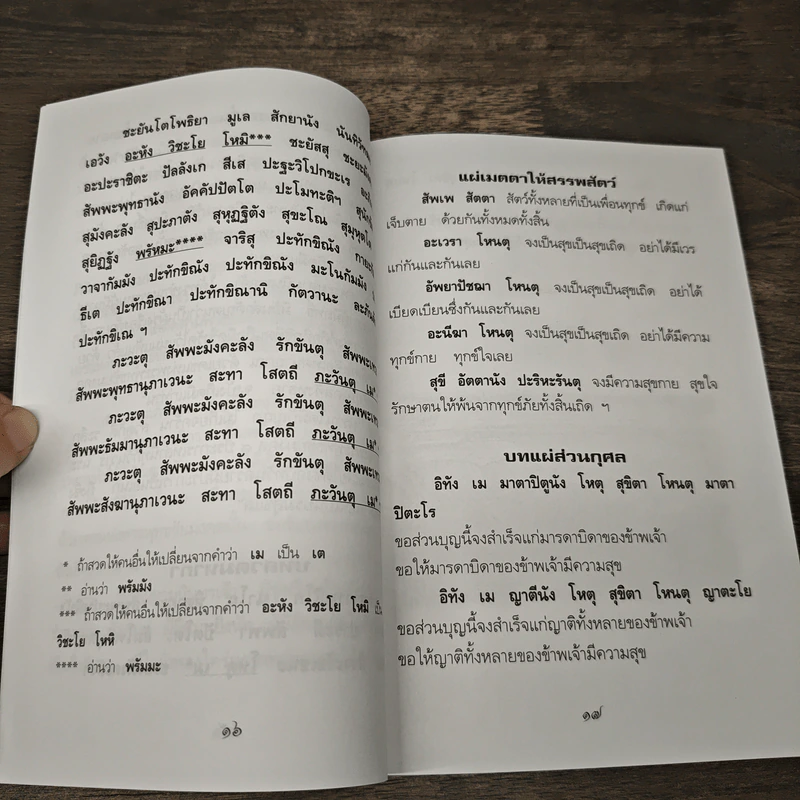 ชะยันโตโพธิยา มูเล สักยานัง
เอวัง อะหัง วิชะโย โหมิ*** ชะยัสสุ
อะปะราชิตะ ปัลลังเก สีเส ปะฐะวิโปกขะเร
สัพพะพุทธานัง อัคคัปปัตโต ปะโมทะติฯ
สุมังคะลัง สุปะภาตัง สุหุฏฐิตัง สุขะโณ
สุยิฏฐัง พรัหมะ**** จาริสุ ปะทักขิณัง
วาจากัมมัง ปะทักขิณัง ปะทักขิณัง มะโนกัมมัง
ธีเต ปะทักขิณา ปะทักขิณานิ กัตวานะ
ปะทักขิเณ ฯ
ภะวะตุ สัพพะมังคะลัง รักขันตุ
สัพพะพุทธานุภาเวนะ สะทา โสตถี ภะวันตุ เม*
ภะวะตุ สัพพะมังคะลัง รักขันตุ
สัพพะธัมมานุภาเวนะ สะทา โสตถี ภะวันตุ เม*
ภะวะตุ สัพพะมังคะลัง รักขันตุ
สัพพะสังฆานุภาเวนะ สะทา โสตถี ภะวันตุ เม*
* ถ้าสวดให้คนอื่นให้เปลี่ยนจากคำว่า เม เป็น เต
** อ่านว่า พรัมมัง
*** ถ้าสวดให้คนอื่นให้เปลี่ยนจากคำว่า อะหัง วิชะโย โหมิ
วิชะโย โหหิ
**** อ่านว่า พรัมมะ
๑๖
แผ่เมตตาให้สรรพสัตว์
สัพเพ สัตตา สัตว์ทั้งหลายที่เป็นเพื่อนทุกข์ เกิดแก่
เจ็บตาย ด้วยกันทั้งหมดทั้งสิ้น
อะเวรา โหนตุ จงเป็นสุขเป็นสุขเถิด อย่าได้มีเวร
แก่กันและกันเลย
อัพยาปัชฌา โหนตุ จงเป็นสุขเป็นสุขเถิด อย่าได้
เบียดเบียนซึ่งกันและกันเลย
อะนีฆา โหนตุ จงเป็นสุขเป็นสุขเถิด อย่าได้มีความ
ทุกข์กาย ทุกข์ใจเลย
สุขี อัตตานัง ปะริหะรันตุ จงมีความสุขกาย สุขใจ
รักษาตนให้พ้นจากทุกข์ภัยทั้งสิ้นเถิด ฯ
บทแผ่ส่วนกุศล
อิทัง เม มาตาปิตูนัง โหตุ สุขิตา โหนตุ มาตา
ปิตะโร
ขอส่วนบุญนี้จงสำเร็จแก่มารดาบิดาของข้าพเจ้า
ขอให้มารดาบิดาของข้าพเจ้ามีความสุข
อิทัง เม ญาตีนัง โหตุ สุขิตา โหนตุ ญาตะโย
ขอส่วนบุญนี้จงสำเร็จแก่ญาติทั้งหลายของข้าพเจ้า
ขอให้ญาติทั้งหลายของข้าพเจ้ามีความสุข
๑๗